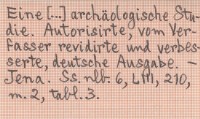 Eine [...] archäologische Stu-
die. Autorisirte, vom Ver-
fasser revidirte und verbes-
serte, deutsche Ausgabe. –
Jena. Ss. nlb. 6, LIII, 210,
m. 2, tabl. 3.